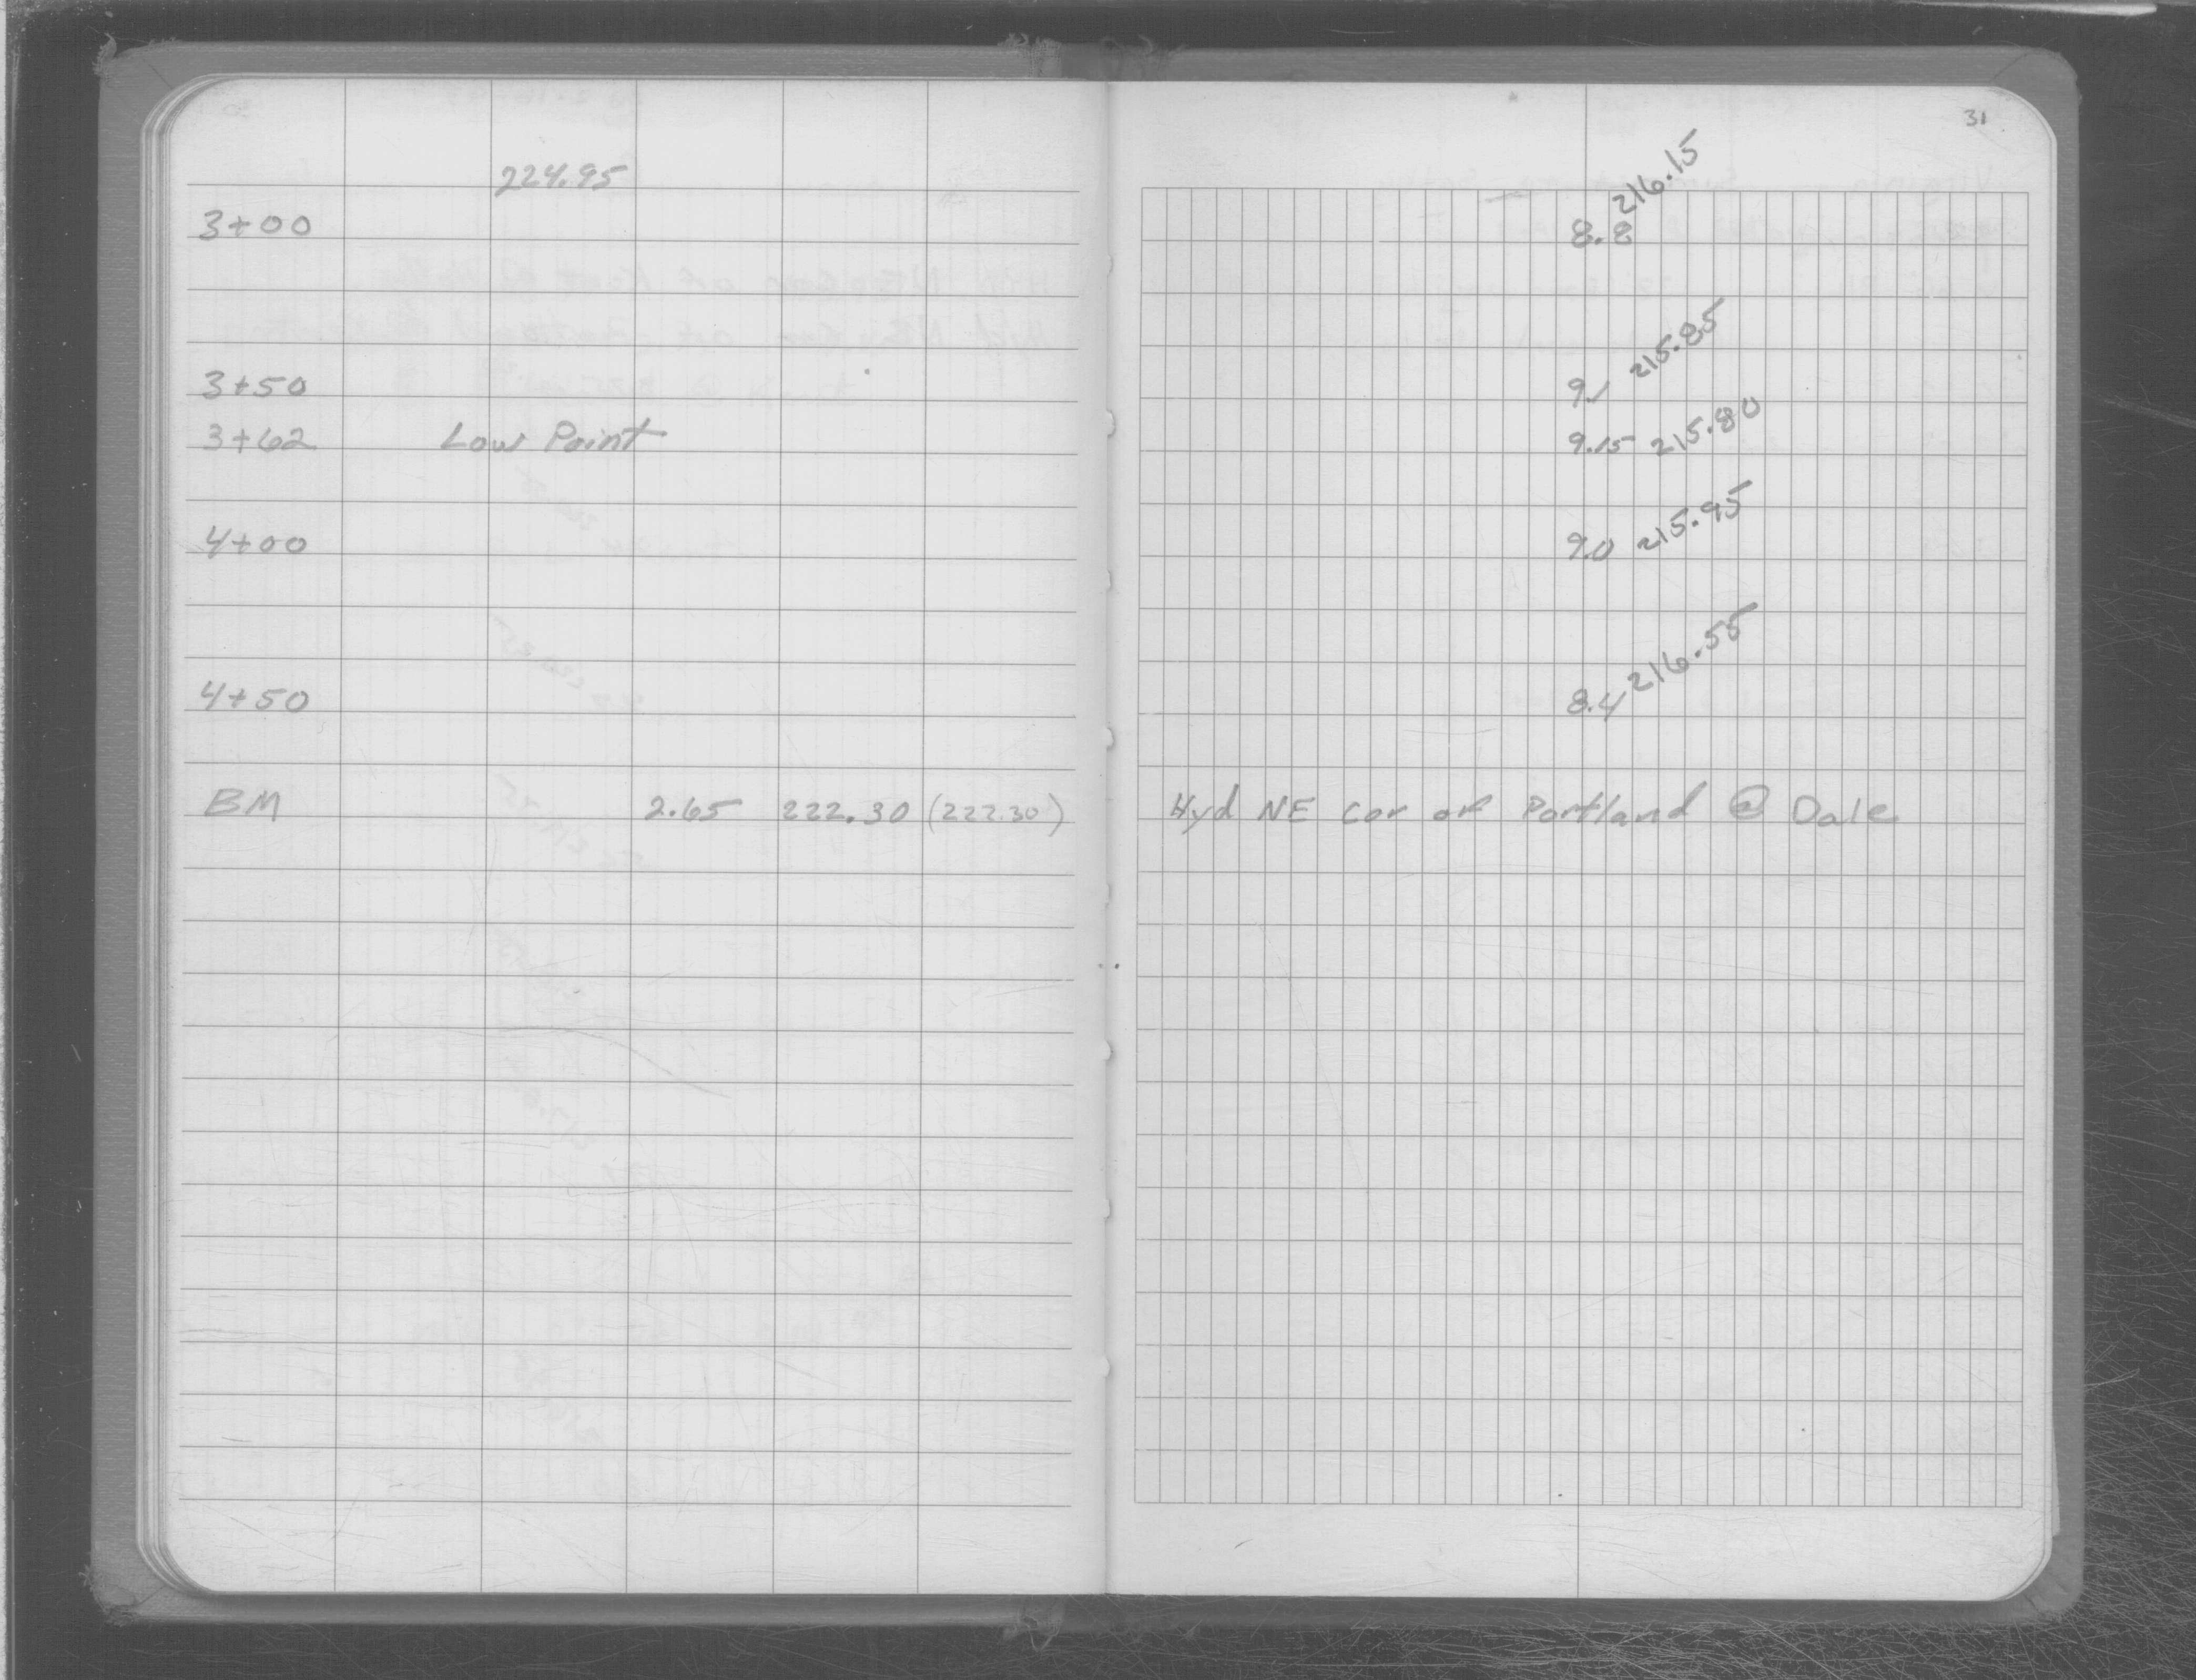 31
224.95
3+00 8.8 216.15
3+50 9.1 215.85
3+62 Low Point 9.15 215.80
4+00 9.0 215.95
4+50 8.4 216.55
BM 2.65 222.30 (222.30) Hyd NE Cor of Portland @ Dale